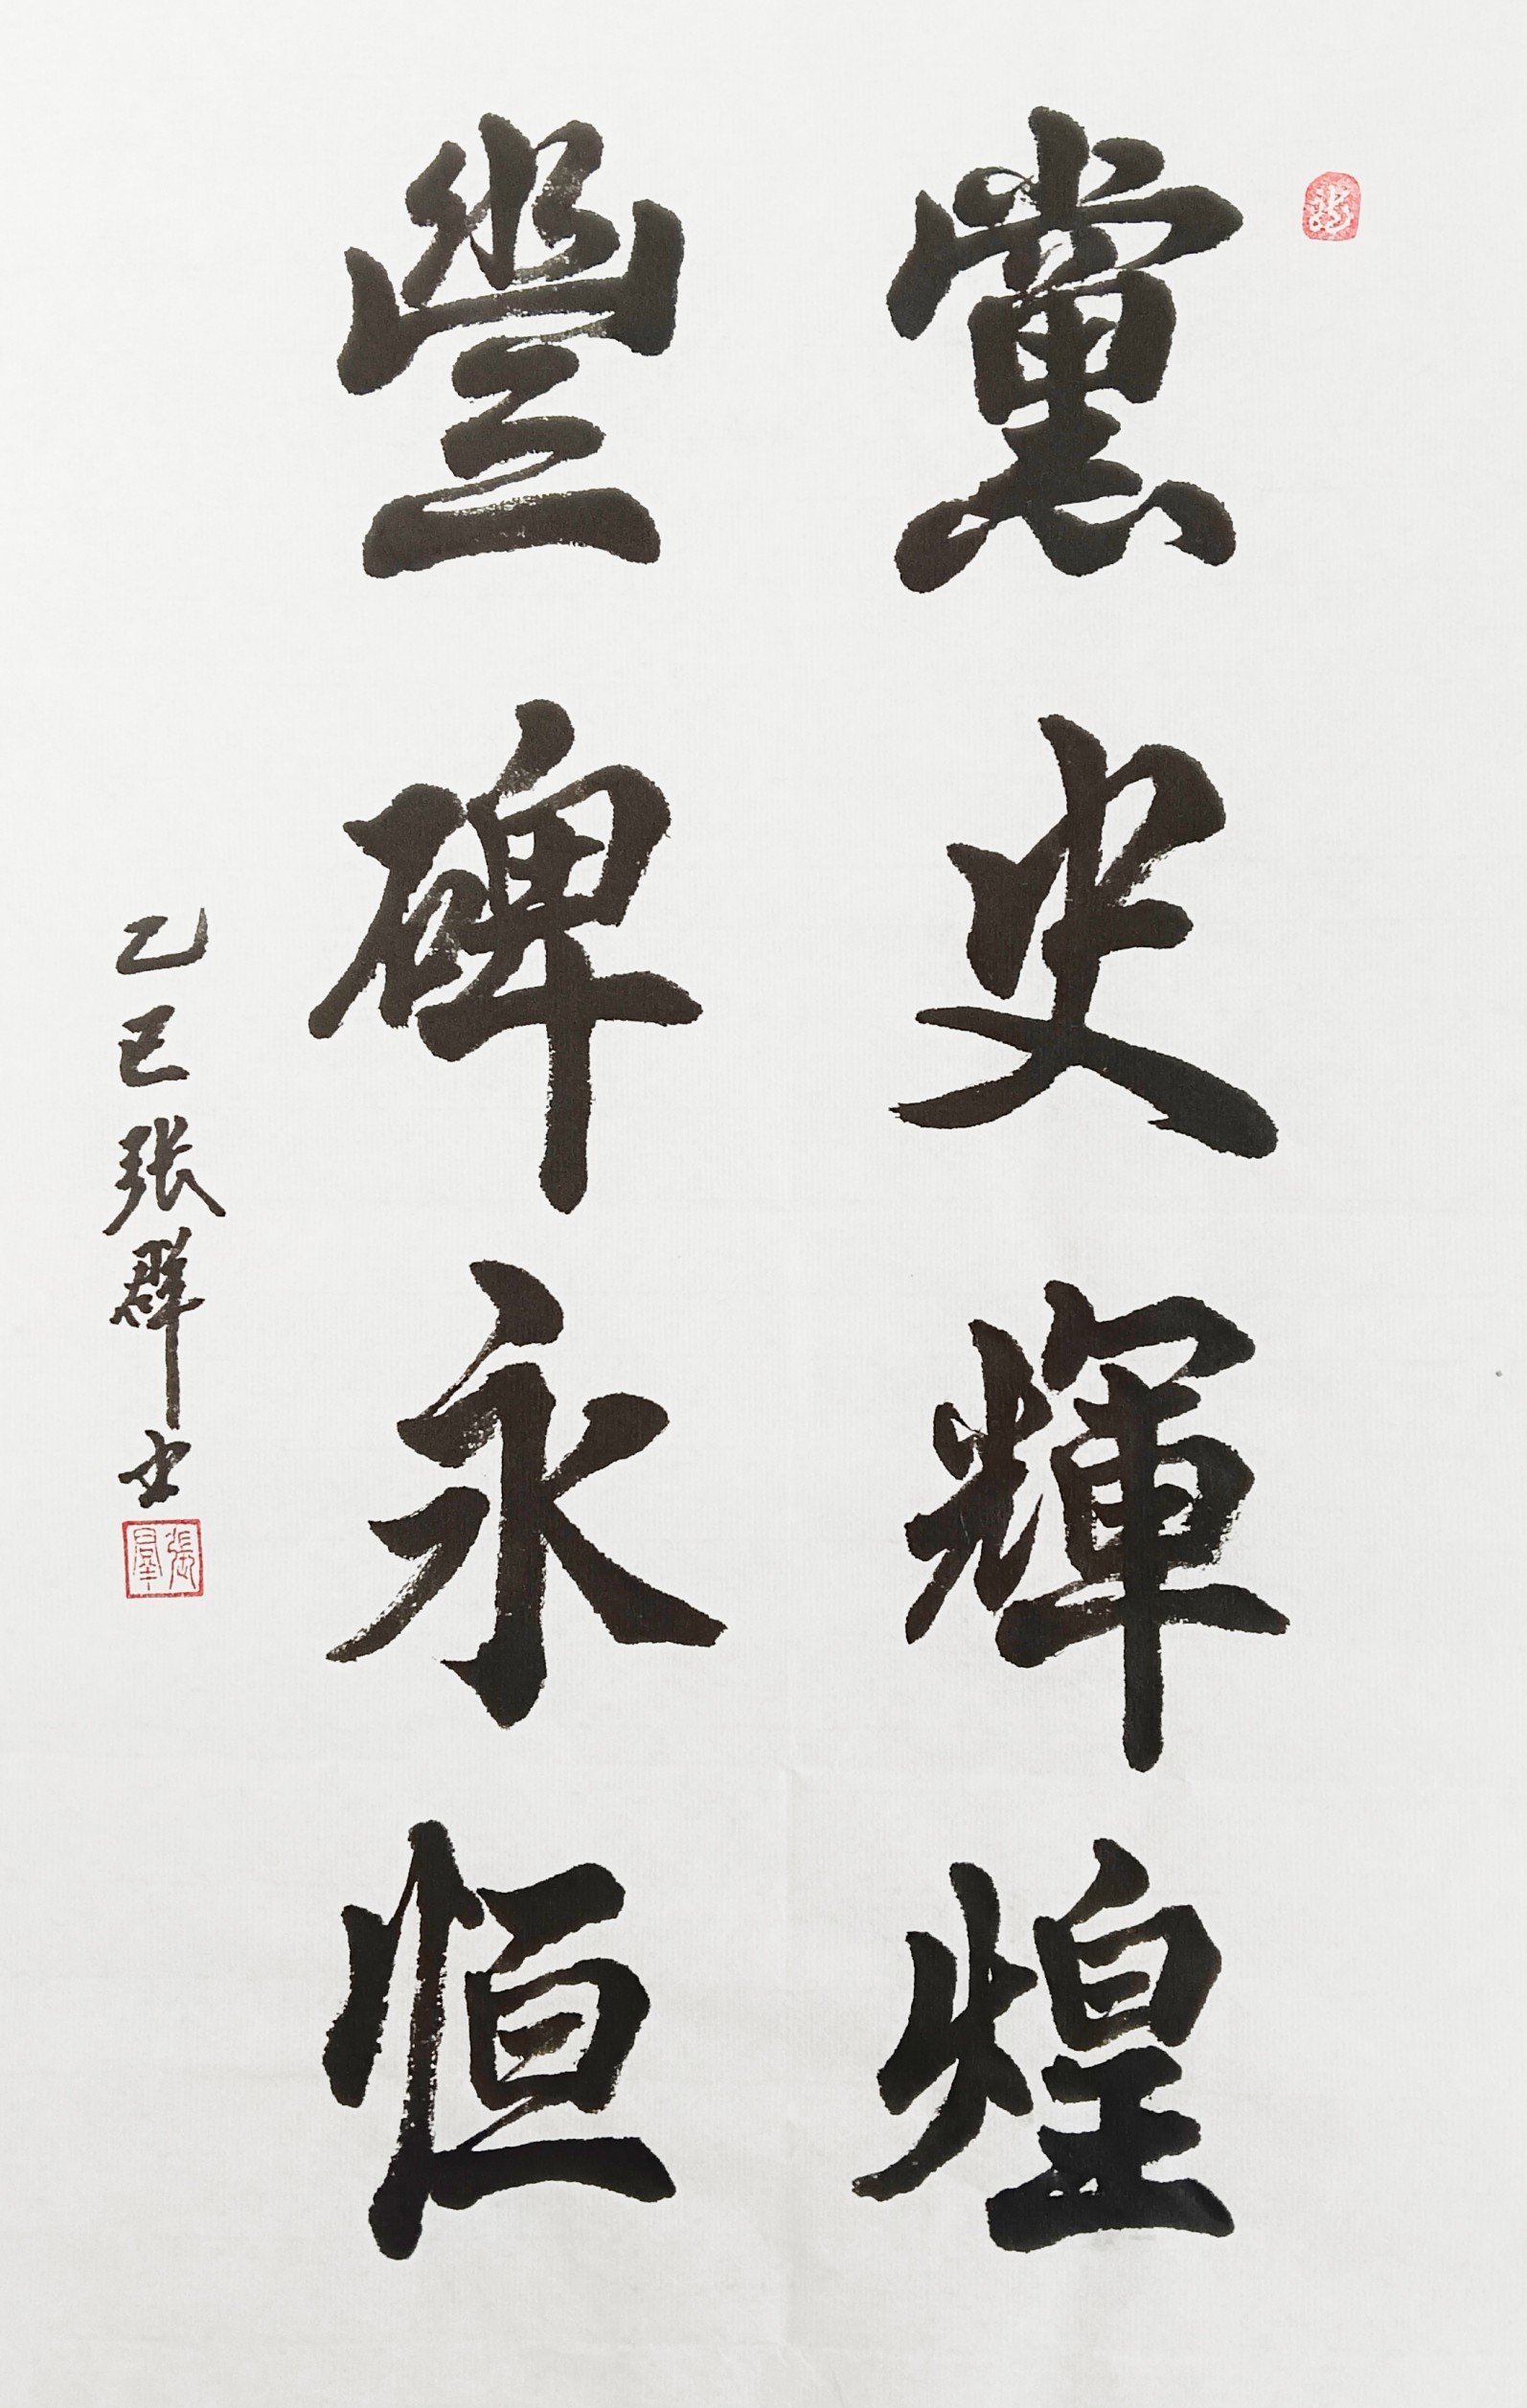 黨史輝煌
豐碑永恒
乙巳張群书
張羣